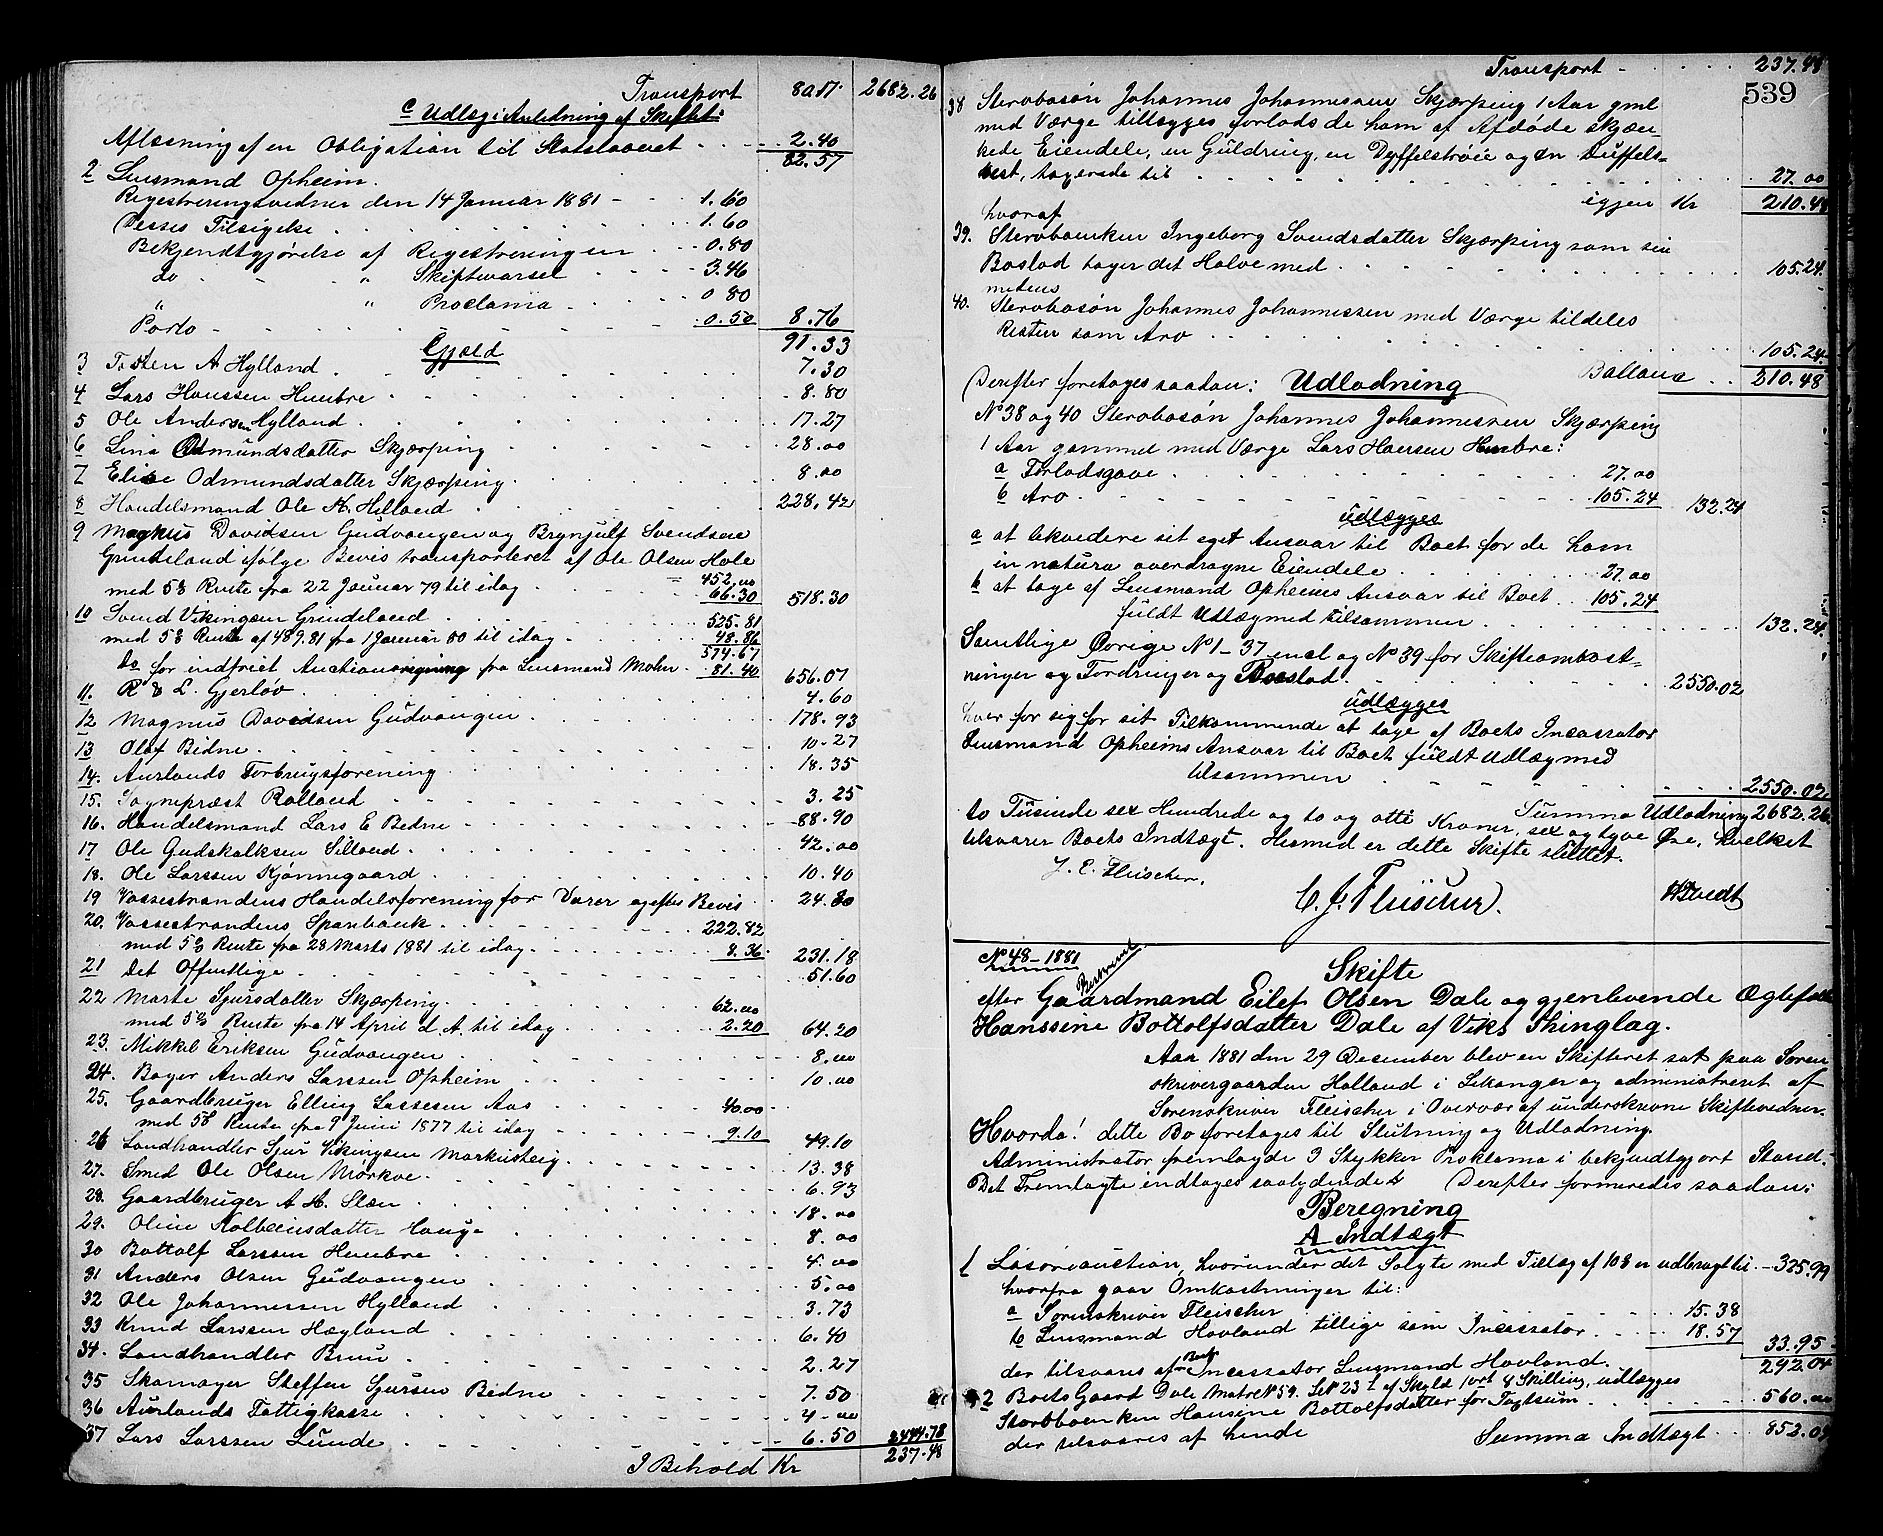 Transport 80.17. 2682.26
c Udlæg i Anledning af Skiftet:
Aflæsning af en Obligation til Statslaanet . . . 2.40
82.57
2 Lensmand Opheim.
Registreringsvidner den 14 Januar 1881 - - 1.60
Disses Tilsigelse . . . 1.60
Bekjendtgjørelse af Registreringen . . 0.80
do " Skiftevarsel . . . 3.46
" " Proclama . . . 0.80
Porto - - - 0.50 8.76
91.33
Gjæld
3 Tosten A Hylland . . . 7.30
4 Lars Hanssen Hunbre . . . 8.80
5 Ole Andersen Hylland . . . 17.27
6 Lina Odmundsdatter Skjærping . . . 28.00
7 Elise Odmundsdatter Skjærping . . . 8.00
8 Handelsmand Ole K. Helland . . . 228.42
9 Magnus Davidsen Gudvangen og Brynjulf Svendsen
Grindeland ifølge Bevis transporteret af Ole Olsen Hole
452.00
med 5% Rente fra 22 Januar 79 til idag . . 66.30 518.30
10 Svend Vikingsen Grindeland . . 525.81
med 5% Rente af 489.81 fra 1 Januar 80 til idag . . 48.86
574.67
Do for indfriet Auctionsregning fra Lensmand Mohn . . 81.40 656.07
11. R & L. Gjerløv . . . 4.60
12 Magnus Davidsen Gudvangen . . . 178.93
13 Olaf Bidne . . . 10.27
14. Aurlands Forbrugsforening . . . 18.35
15. Sogneprest Rolland . . . 3.25
16. Handelsmand Lars E Bidne . . . 88.90
17 Ole Gudskalksen Silland . . . 42.00
18. Ole Larssen Kjønnegaard . . . 10.40
19 Vossestrandens Handelsforening for Varer og efter Bevis . 24.80
20. Vossestrandens Sparebank . . . 222.82
med 5% Rente fra 28 Marts 1881 til idag . . . 8.36 231.18
21 Det Offentlige . . . 51.60
22 Marte Sjursdatter Skjærping . . . 62.00
med 5% Rente fra 14 April d. A. til idag . . . 2.20 64.20
23. Mikkel Eriksen Gudvangen . . . 8.00
24. Bager Anders Larssen Opheim . . . 10.00
25. Gaardbruger Elling Lassesen Aas . . . 40.00
med 5% Rente fra 9 Juni 1877 til idag . . . 9.10 49.10
26 Landhandler Sjur Vikingsen Markusteig . . . 13.38
27. Smed Ole Olsen Morkve . . . 6.93
28. Gaardbruger A. H. Slæn . . . 18.00
29. Oline Kolbeinsdatter Hauge . . . 8.00
30 Bottolf Larssen Hunbre . . . 4.00
31 Anders Olsen Gudvangen . . . 5.00
32 Ole Johannessen Hylland . . . 3.73
33 Knud Larssen Hægland . . . 6.40
34. Landhandler Bruu . . . 2.27
35 Skomager Steffen Sjursen Bidne . . . 7.50
36 Aurlands Fattigkasse . . . 4.00
37 Lars Larssen Lunde . . . 6.50 2444.78
I Behold Kr 237.48
Transport - . . . 237.48
539
38 Stervbosøn Johannes Johannessen Skjærping 1 Aar gml
med Værge tillægges forlods de ham af Afdøde skjæn-
kede Eiendele, en Guldring, en Dyffelstrøie og en Duffels-
vest, tagerede til . . . 27.00
igjen Kr 210.48
hvoraf
39. Stervboenken Ingeborg Svendsdatter Skjærping som sin
Boslod tager det Halve med . . . 105.24.
medens
40. Stervbosøn Johannes Johannessen med Værge tildeles
Resten som Arv . . . 105.24.
Ballance . . 210.48
Derefter foretages saadan: Udlodning
No 38 og 40 Stervbosøn Johannes Johannessen Skjærping
1 Aar gammel med Værge Lars Hansen Hunbre:
a Forlodsgave . . . 27.00
b Arv . . . 105.24 132.24
udlægges
a at likvidere sit eget Ansvar til Boet for de ham
in natura overdragne Eiendele . . . 27.00
b at tage af Lensmand Opheims Ansvar til Boet . . 105.24
fuldt Udlæg med tilsammen . . . 132.24.
Samtlige Øvrige No 1 - 37 incl og No 39 for Skifteomkost-
ninger og Fordringer og Boeslod . . . 2550.02
udlægges
hver for sig for sit Tilkommende at tage af Boets Incassator
Lensmand Opheims Ansvar til Boet fuldt Udlæg med
tilsammen . . . 2550.02
Summa Udlodning 2682.26.
to Tusinde sex Hundrede og to og otti Kroner, sex og tyve Øre, hvilket
tilsvarer Boets Indtægt. Hermed er dette Skifte sluttet.
J. E. Fleischer.
C. J. Fleischer.
No 48 - 1881
Skifte
efter Gaardmand Eilef Olsen Dale og gjenlevende Ægtefælle
Hanssine Bottolfsdatter Dale af Viks Thinglag.
Aar 1881 den 29 December blev en Skifteret sat paa Soren
skrivergaarden Holland i Leikanger og administreret af
Sorenskriver Fleischer i Overvær af underskrevne Skiftevidner.
Hvorda! dette Bo foretages til Slutning og Udlodning.
Administrator fremlagde 9 Stykker Proklama i bekjendtgjort Stand.
Det Fremlagte indtages saalydende & Derefter formeredes saadan:
Beregning
A Indtægt
1 Løsøreauction, hvorunder det Solgte med Tillæg af 10% er udbragt til . 325.99
hvorfra gaar Omkostninger til:
a Sorenskriver Fleischer . . . 15.38
b Lensmand Hovland tillige som Incassator . . . 18.57 33.95
292.04
der tilsvares af Boets Incassator Lensmand Hovland.
2 Boets Gaard Dale Matr No 59. Lno 23 f af Skyld 1 ort 4 Skilling, udlægges
Stervboenken Hansine Bottolfsdatter for Taxtsum . . . 560.00
der tilsvares af hende Summa Indtægt . . 852.04